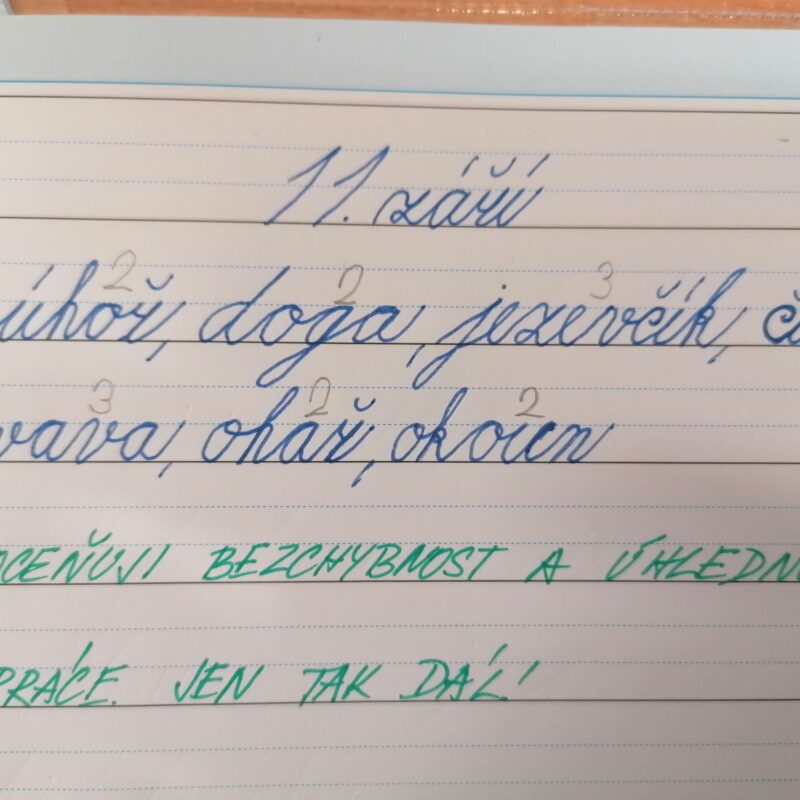 11. září
úhoř, doga, jezevčík, či
vava, ohař, okoun
OCEŇUJI BEZCHYBNOST A ÚHLEDN
PRÁCE. JEN TAK DÁL!